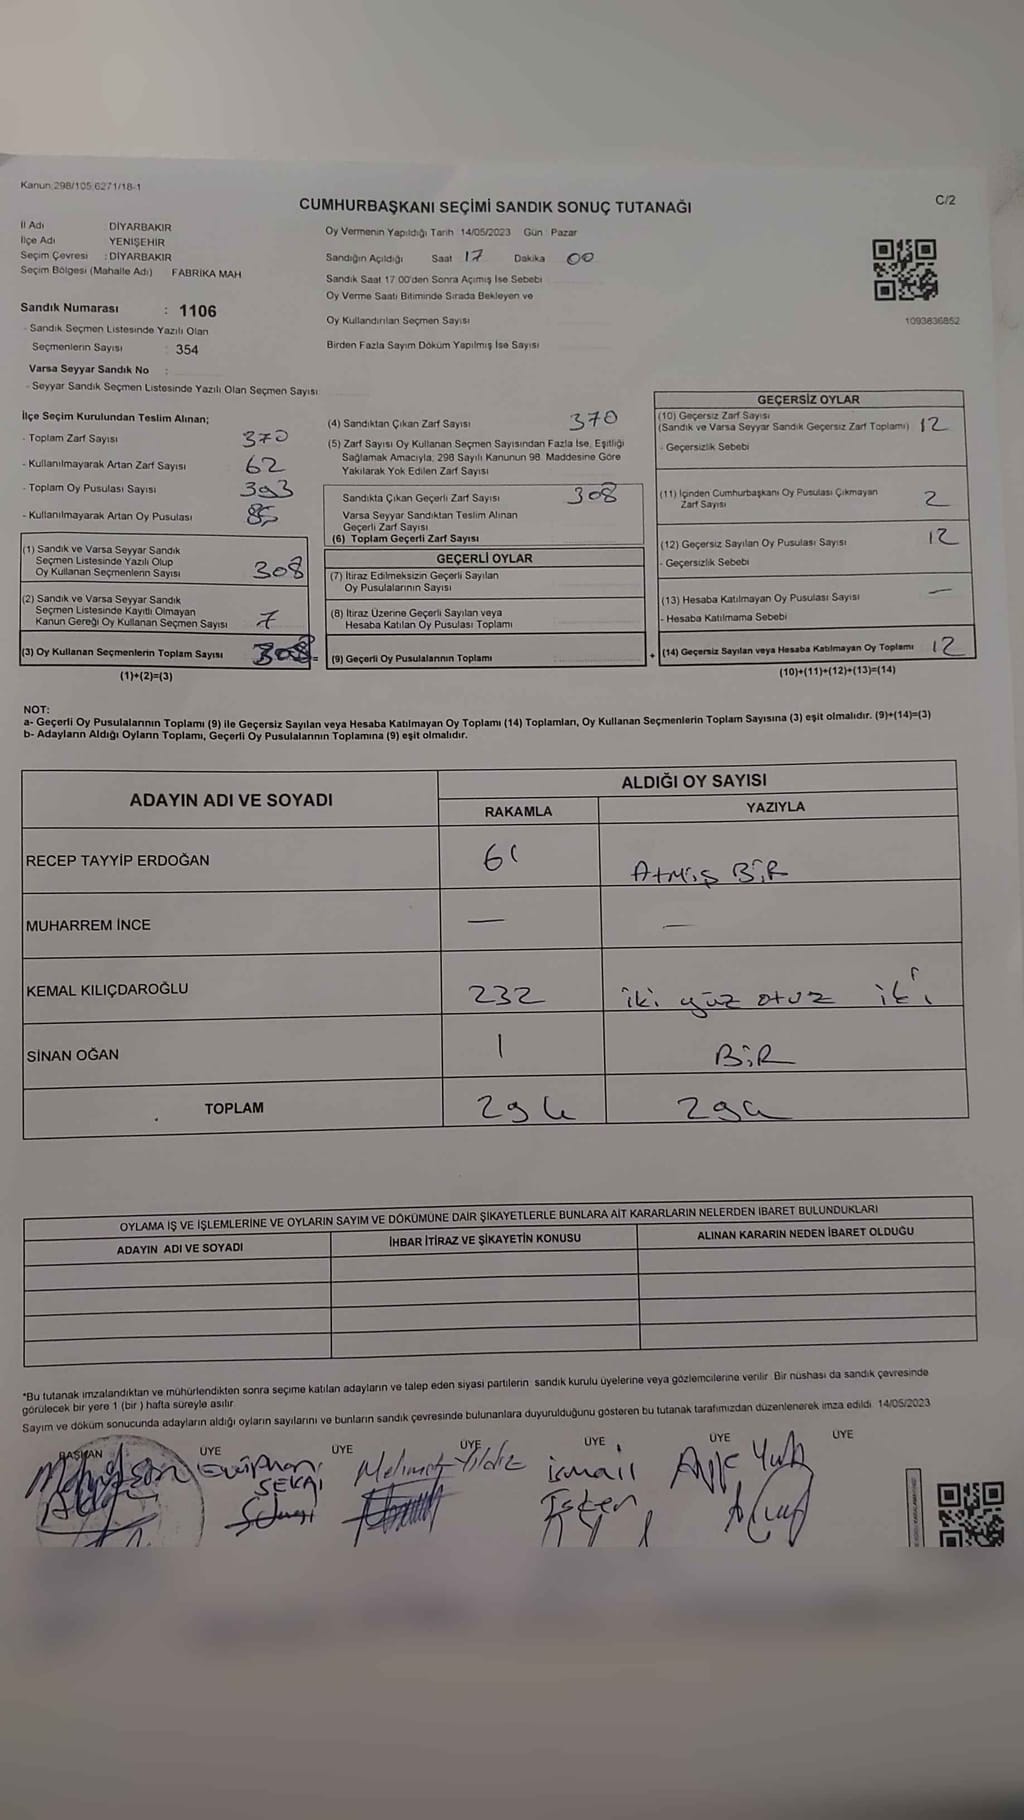 Kanun:298/105;6271/18-1
C/2
CUMHURBAŞKANI SEÇİMİ SANDIK SONUÇ TUTANAĞI
İl Adı DİYARBAKIR
İlçe Adı YENİŞEHİR
Seçim Çevresi : DİYARBAKIR
Seçim Bölgesi (Mahalle Adı) FABRİKA MAH
Sandık Numarası : 1106
- Sandık Seçmen Listesinde Yazılı Olan
Seçmenlerin Sayısı 354
Varsa Seyyar Sandık No :
- Seyyar Sandık Seçmen Listesinde Yazılı Olan Seçmen Sayısı
Oy Vermenin Yapıldığı Tarih 14/05/2023 Gün Pazar
Sandığın Açıldığı Saat 17 Dakika 00
Sandık Saat 17:00'den Sonra Açımış İse Sebebi
Oy Verme Saati Bitiminde Sırada Bekleyen ve
Oy Kullandırılan Seçmen Sayısı
Birden Fazla Sayım Döküm Yapılmış İse Sayısı
1093636852
İlçe Seçim Kurulundan Teslim Alınan;
- Toplam Zarf Sayısı 370
- Kullanılmayarak Artan Zarf Sayısı 62
- Toplam Oy Pusulası Sayısı 393
- Kullanılmayarak Artan Oy Pusulası 85
(1) Sandık ve Varsa Seyyar Sandık
Seçmen Listesinde Yazılı Olup
Oy Kullanan Seçmenlerin Sayısı 308
(2) Sandık ve Varsa Seyyar Sandık
Seçmen Listesinde Kayıtlı Olmayan
Kanun Gereği Oy Kullanan Seçmen Sayısı 7
(3) Oy Kullanan Seçmenlerin Toplam Sayısı 308 =
(1)+(2)=(3)
(4) Sandıktan Çıkan Zarf Sayısı 370
(5) Zarf Sayısı Oy Kullanan Seçmen Sayısından Fazla İse, Eşitliği
Sağlamak Amacıyla; 298 Sayılı Kanunun 98. Maddesine Göre
Yakılarak Yok Edilen Zarf Sayısı
Sandıkta Çıkan Geçerli Zarf Sayısı 308
Varsa Seyyar Sandıktan Teslim Alınan
Geçerli Zarf Sayısı
(6) Toplam Geçerli Zarf Sayısı
GEÇERLİ OYLAR
(7) İtiraz Edilmeksizin Geçerli Sayılan
Oy Pusulalarının Sayısı
(8) İtiraz Üzerine Geçerli Sayılan veya
Hesaba Katılan Oy Pusulası Toplamı
(9) Geçerli Oy Pusulalarının Toplamı +
GEÇERSİZ OYLAR
(10) Geçersiz Zarf Sayısı
(Sandık ve Varsa Seyyar Sandık Geçersiz Zarf Toplamı) 12
- Geçersizlik Sebebi
(11) İçinden Cumhurbaşkanı Oy Pusulası Çıkmayan
Zarf Sayısı 2
(12) Geçersiz Sayılan Oy Pusulası Sayısı 12
- Geçersizlik Sebebi
(13) Hesaba Katılmayan Oy Pusulası Sayısı —
- Hesaba Katılmama Sebebi
(14) Geçersiz Sayılan veya Hesaba Katılmayan Oy Toplamı 12
(10)+(11)+(12)+(13)=(14)
NOT:
a- Geçerli Oy Pusulalarının Toplamı (9) ile Geçersiz Sayılan veya Hesaba Katılmayan Oy Toplamı (14) Toplamları, Oy Kullanan Seçmenlerin Toplam Sayısına (3) eşit olmalıdır. (9)+(14)=(3)
b- Adayların Aldığı Oyların Toplamı, Geçerli Oy Pusulalarının Toplamına (9) eşit olmalıdır.
ADAYIN ADI VE SOYADI ALDIĞI OY SAYISI
RAKAMLA YAZIYLA
RECEP TAYYİP ERDOĞAN 61 Atmış BİR
MUHARREM İNCE — —
KEMAL KILIÇDAROĞLU 232 iki yüz otuz iki
SİNAN OĞAN 1 BİR
TOPLAM 294 294
OYLAMA İŞ VE İŞLEMLERİNE VE OYLARIN SAYIM VE DÖKÜMÜNE DAİR ŞİKAYETLERLE BUNLARA AİT KARARLARIN NELERDEN İBARET BULUNDUKLARI
ADAYIN ADI VE SOYADI İHBAR İTİRAZ VE ŞİKAYETİN KONUSU ALINAN KARARIN NEDEN İBARET OLDUĞU
*Bu tutanak imzalandıktan ve mühürlendikten sonra seçime katılan adayların ve talep eden siyasi partilerin sandık kurulu üyelerine veya gözlemcilerine verilir. Bir nüshası da sandık çevresinde
görülecek bir yere 1 (bir) hafta süreyle asılır.
Sayım ve döküm sonucunda adayların aldığı oyların sayılarını ve bunların sandık çevresinde bulunanlara duyurulduğunu gösteren bu tutanak tarafımızdan düzenlenerek imza edildi. 14/05/2023
BAŞKAN ÜYE ÜYE ÜYE ÜYE ÜYE ÜYE
Mehmet Yıldız ismail
İşten